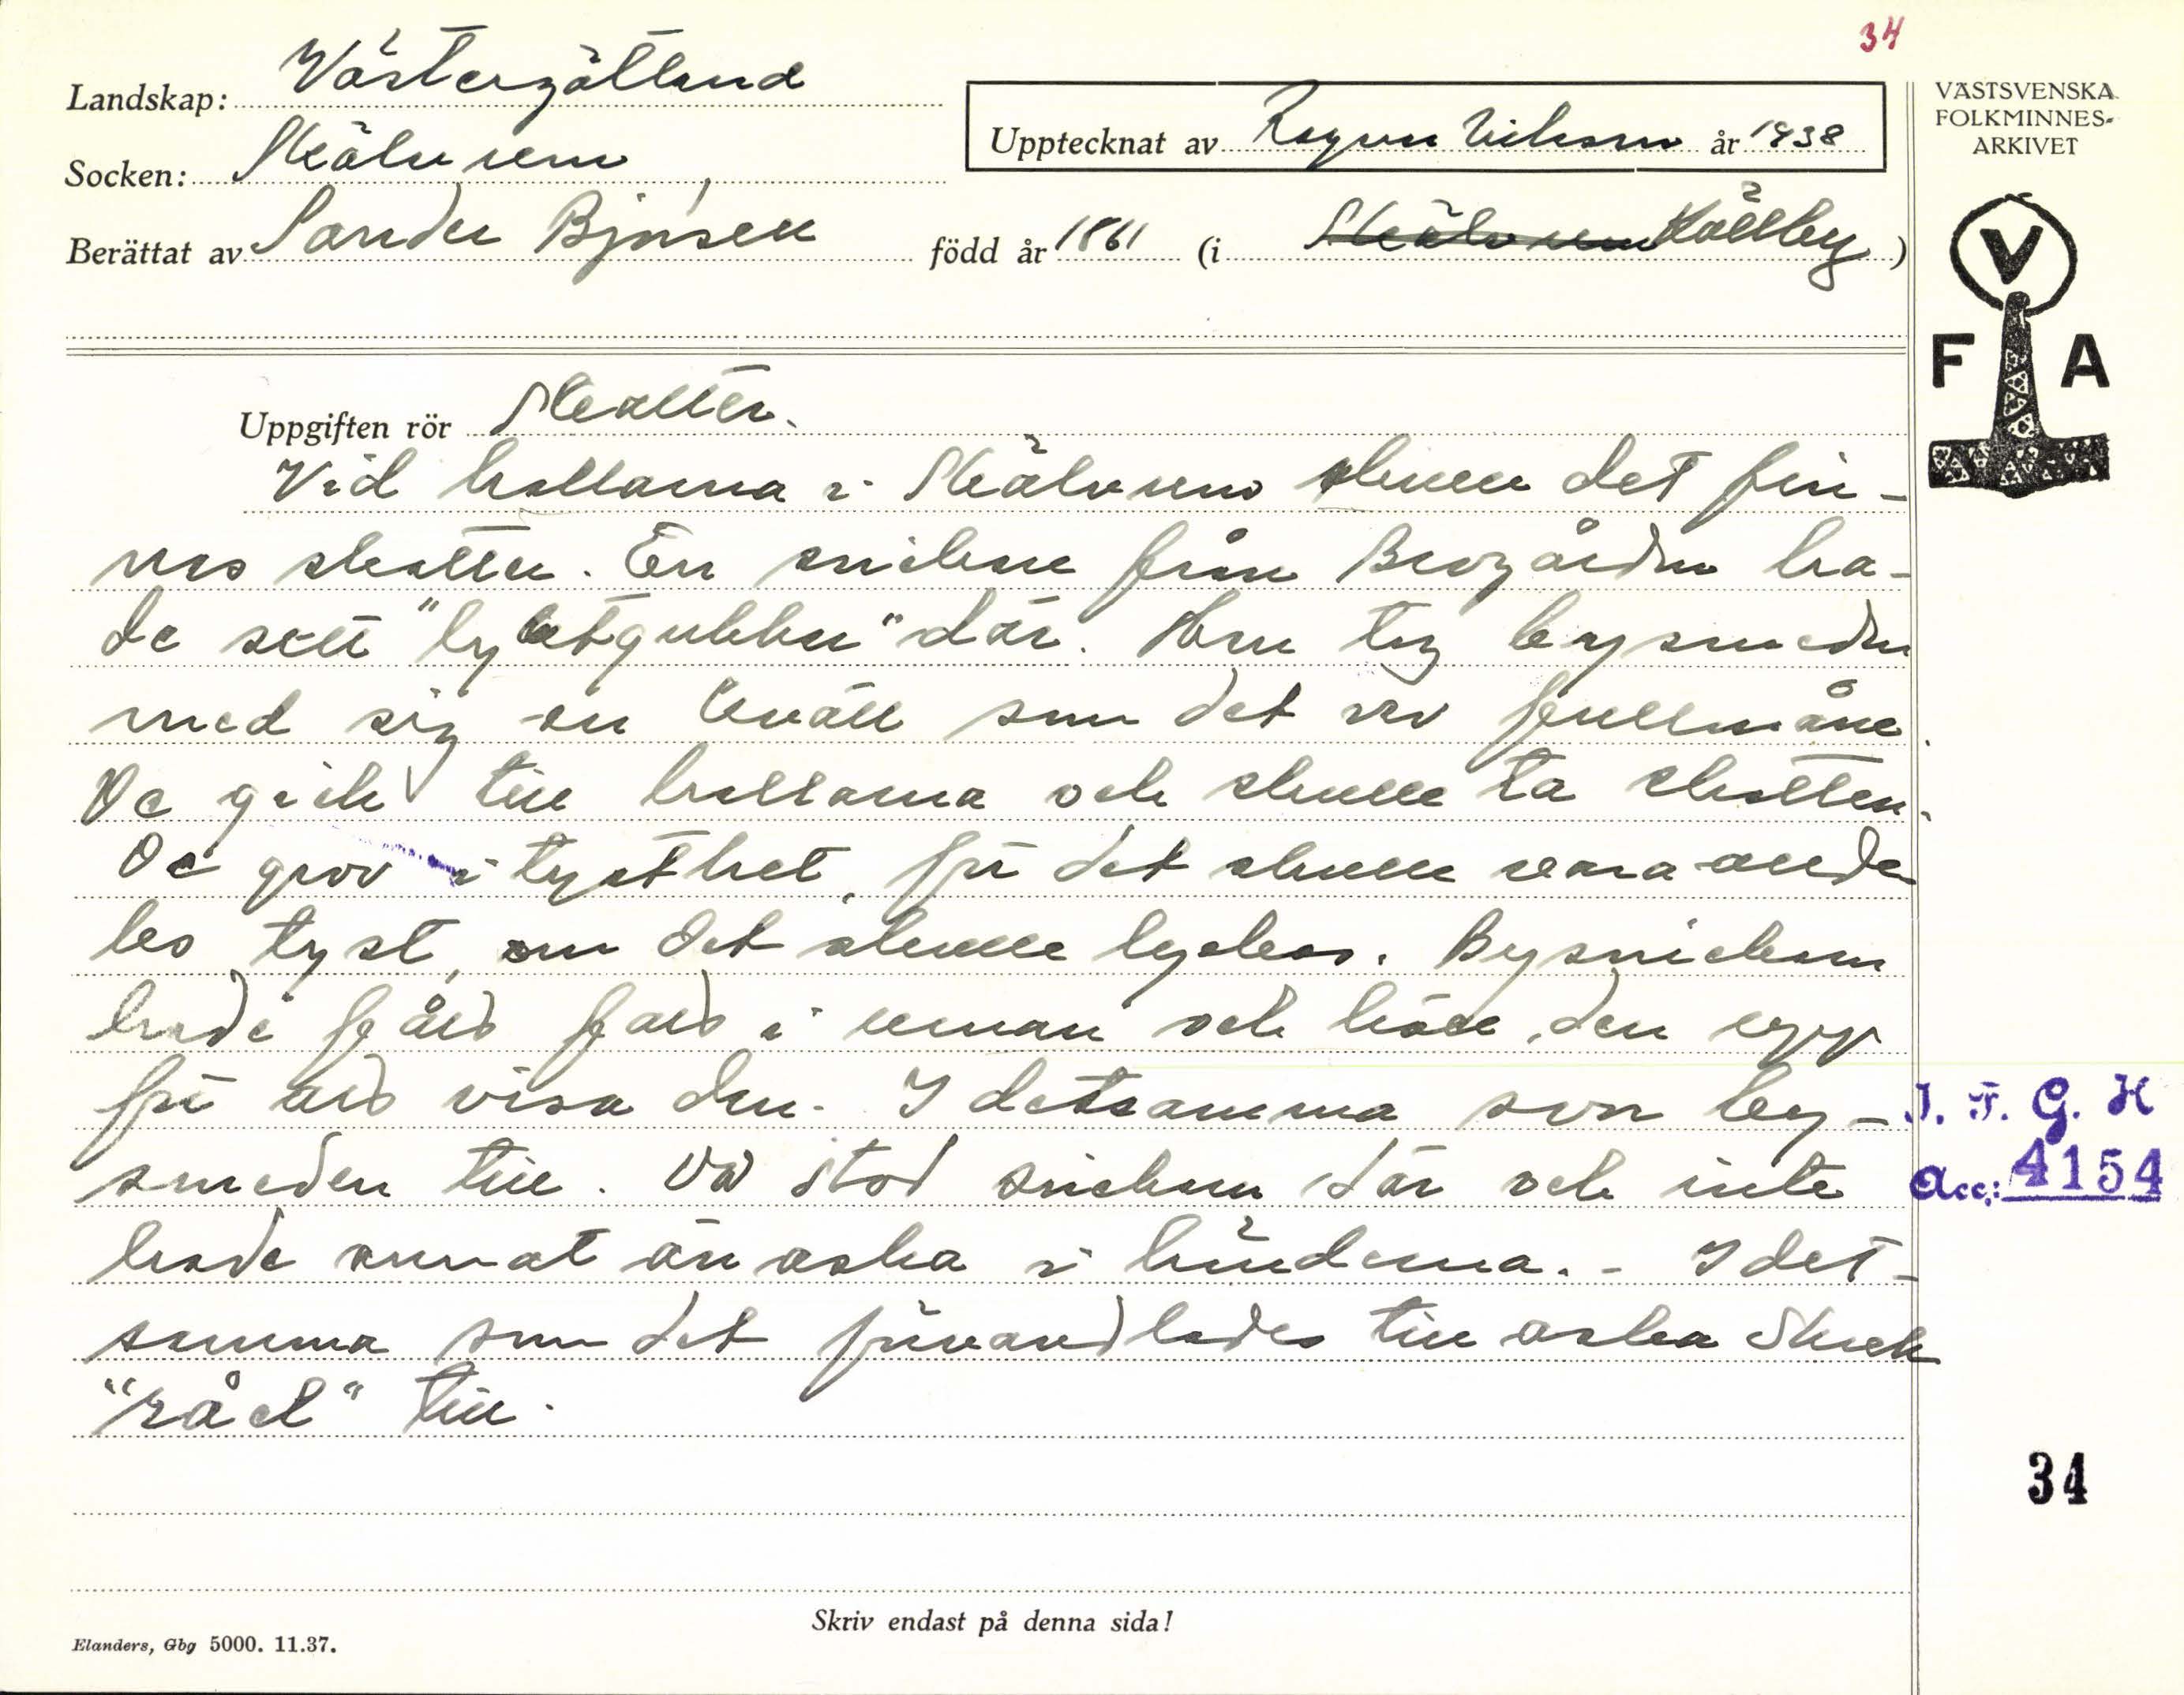 34
Landskap: Västergötland
Socken: Skälvum
Berättat av Sander Björsell född år 1861 (i Skälvum Källby)
Upptecknat av Ragnar Nilsson år 1938
VÄSTSVENSKA
FOLKMINNES-
ARKIVET
V
F A
Uppgiften rör Skatter.
Vid hallarna i Skälvum skulle det fin-
nas skatter. En snickare från Brogården ha-
de sett "lyktgubbar" där. Han tog bysmeden
med sig en kväll som det var fullmåne.
De gick till hallarna och skulle ta skatten.
De grov i tysthet, för det skulle vara allde-
les tyst, om det skulle lyckas. Bysnickarn
hade fått fatt i  och höll den upp
för att visa den. I detsamma svor by-
smeden till. Då stod snickarn där och inte
hade annat än aska i händerna. - I det-
samma som det förvandlades till aska skrek
"rået" till.
I. F. G. H
Acc: 4154
34
Skriv endast på denna sida!
Elanders, Gbg 5000. 11.37.